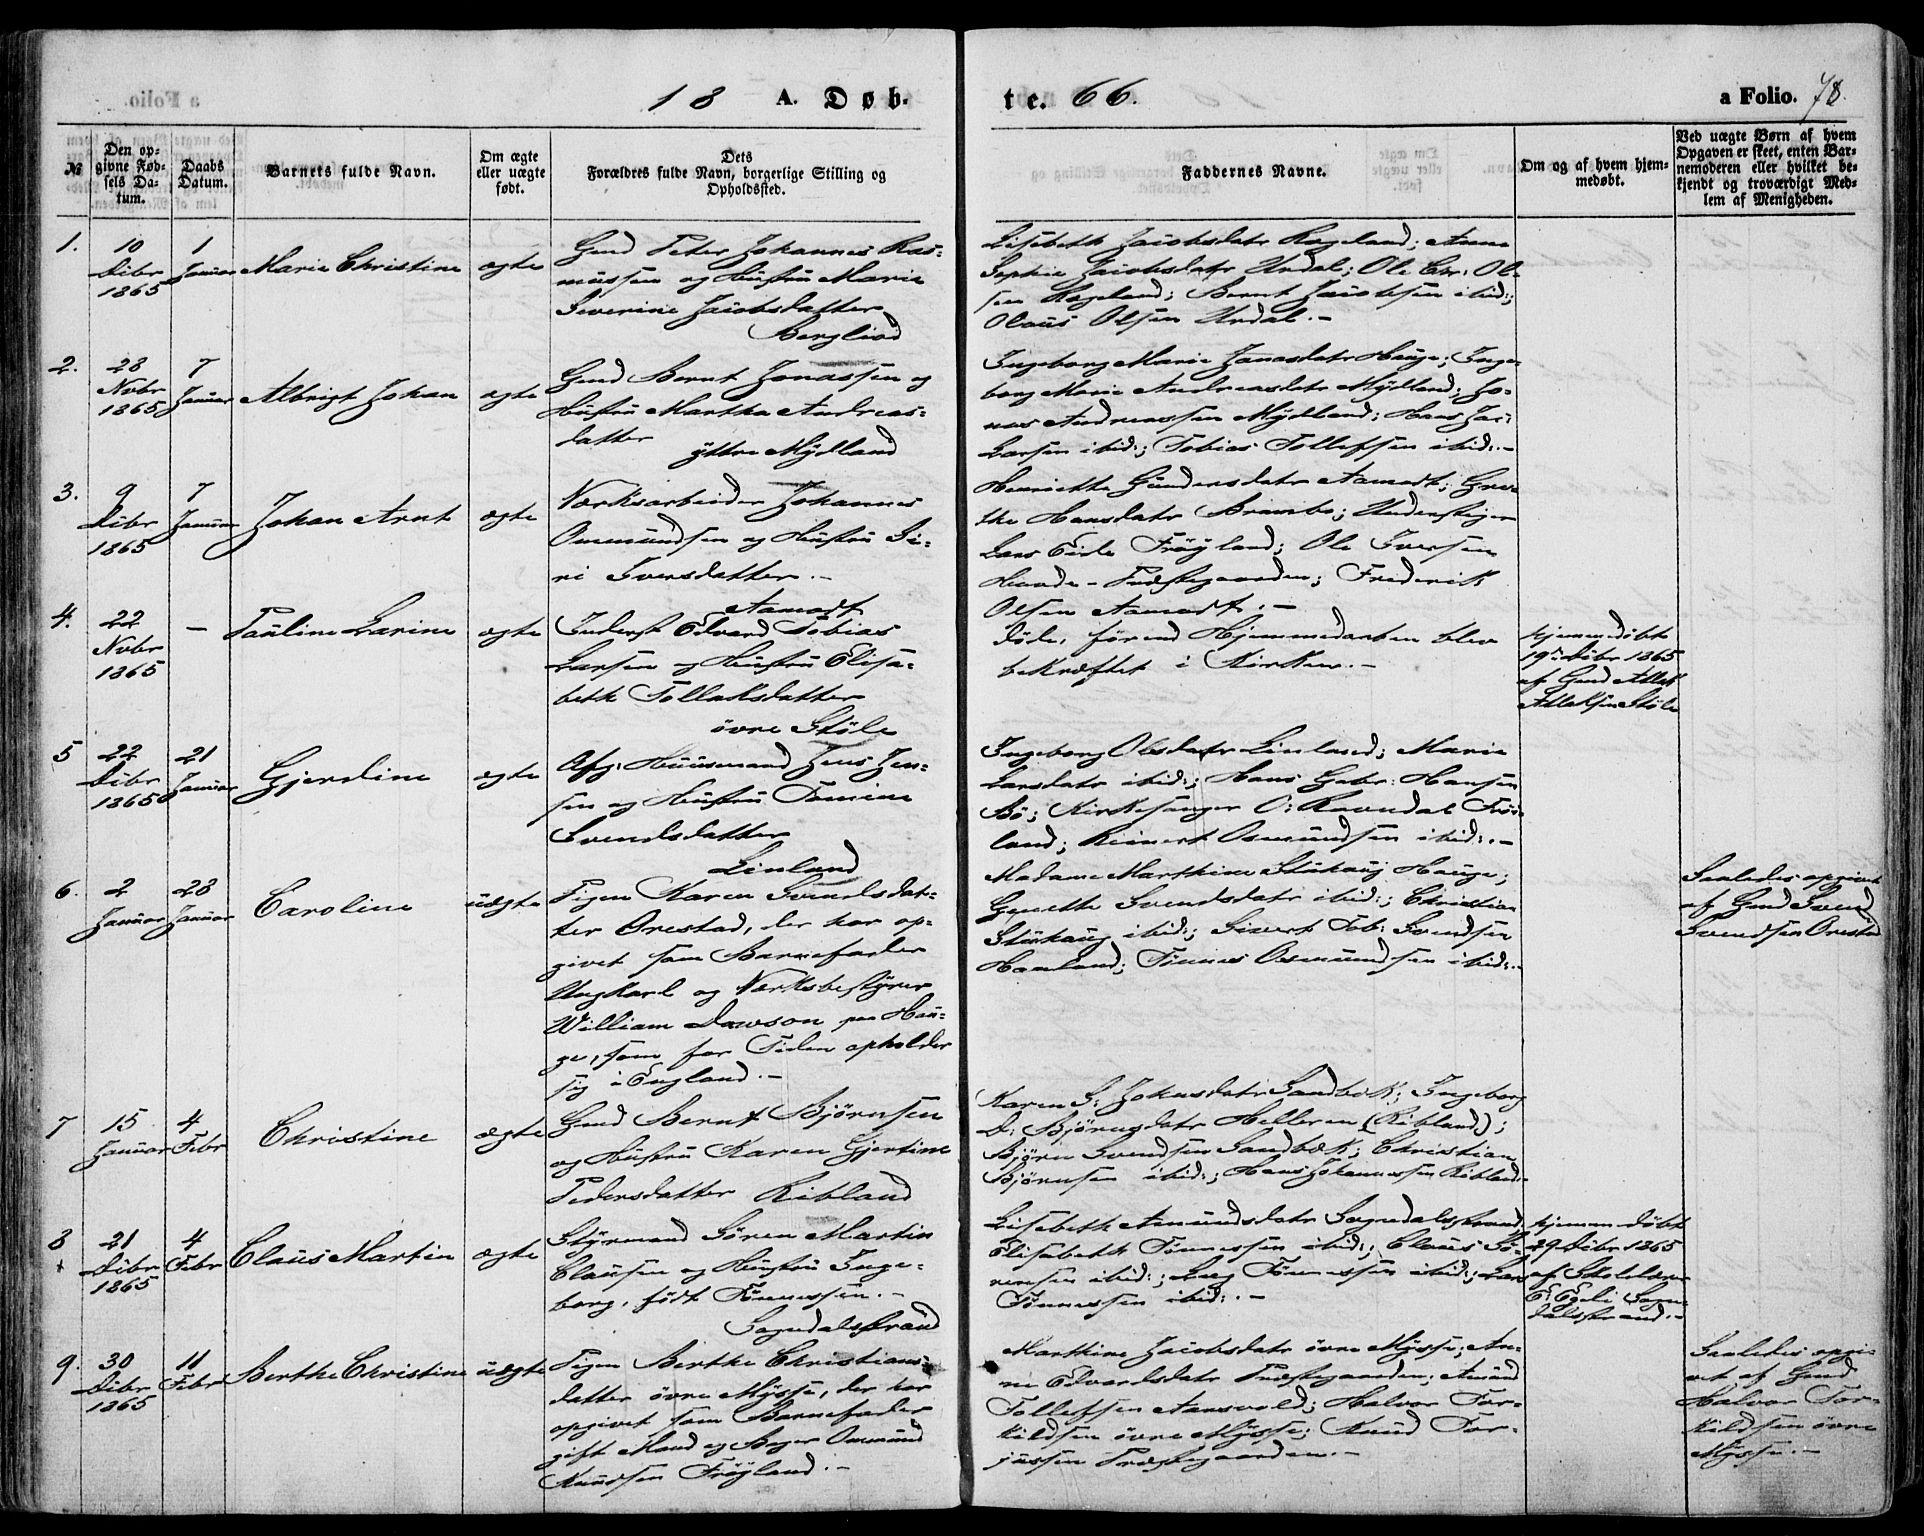 18 A. Døbte. 66.
a Folio. 78.
№
Den opgivne Fødsels Datum.
Daabs Datum.
Barnets fulde Navn.
Om ægte eller uægte født.
Dets Forældres fulde Navn, borgerlige Stilling og Opholdssted.
Faddernes Navne.
Om og af hvem hjemmedøbt.
Ved uægte Børn af hvem Opgaven er skeet, enten Barnemoderen eller hvilket bekjendt og troværdigt Medlem af Menigheden.
1.
10 Dcbr 1865
1 Januar
Marie Christine
ægte
Gmd Peter Johannes Ras-
mussen og Hustru Marie
Severine Jacobsdatter
Bergliod
Lisebeth Jacobsdatr Rægeland; Anne
Sophie Jacobsdatr Urdal; Ole Chr: Ol-
sen Rægeland; Bernt Jacobsen ibid:;
Olaus Olsen Urdal.-
2.
28 Novbr 1865
7 Januar
Albrigt Johan
ægte
Gmd Bernt Jonassen og
Hustru Martha Andreas-
datter
yttre Mydland
Ingeborg Marie Jonasdatr Hauge; Inge-
borg Marie Andreasdatr Mydland; Jo-
nas Andreassen Mydland; Hans Jac:
Larsen ibid:; Tobias Tollefsen ibid:.-
3.
9 Dcbr 1865
7 Januar
Johan Arnt
ægte
Værksarbeider Johannes
Ommundsen og Hustru Si-
ri Iversdatter.-
Aamodt
Henriette Gundersdatr Aamodt; Gre-
the Hansdatr Brambo; Understiger
Lars Eide Frøyland; Ole Iversen
Hovde-Præstegaarden; Frederik
Olsen Aamodt.-
4.
22 Novbr 1865
-
Pauline Larine
ægte
Inderst Edvard Tobias
Larsen og Hustru Elisa-
beth Tollaksdatter
övre Stöle
døde, førend Hjemmedaaben blev
bekræftet i Kirken.-
hjemmedöbt
19de Dcbr 1865
af Gmd Atlak
Atlaksen Støle
5
22 Dcbr 1865
21 Januar
Gjerdine
ægte
Afg: Huusmand Jens Jen-
sen og Hustru Tomine
Svendsdatter
Linland
Ingeborg Olsdatr Linland; Marie
Larsdatr ibid:; Hans Gabr: Hansen
Bö; Kirkesanger O: Ravndal Frøi-
land; Reinert Osmundsen ibid:.-
6.
2 Januar
28 Januar
Caroline
uægte
Pigen Karen Svendsdat-
ter Orestad, der har op-
givet som Barnefader
Ungkarl og Værksbestyrer
William Dawson paa Hau-
ge, som for Tiden opholder
sig i England.-
Madame Marthine Stuhaug Hauge;
Gunette Svendsdatr ibid:; Christian
Stuhaug ibid:; Sivert Tob: Svendsen
Haaland; Tønnes Osmundsen ibid:.-
Saaledes opgivet
af Gmd Svend
Svendsen Orestad
7
15 Januar
4 Febr
Christine
ægte
Gmd Bernt Bjørnsen
og Hustru Karen Gjertine
Pedersdatter Ribland
Karen S: Johnsdatr Sandbæk; Ingeborg
D: Bjørnsdatr Helleren (Ribland);
Bjørn Svendsen Sandbæk; Christian
Bjørnsen ibid:; Hans Johannessen Ribland.-
8
21 Dcbr 1865
4 Febr
Claus Martin
ægte
Styrmand Sören Martin
Clausen og Hustru Inge-
borg, født Tønnessen.-
Sogndalsstrand
Lisebeth Amundsdatr Sogndalsstrand
Elisabeth Tönnessen ibid:; Claus Sö-
rensen ibid:; Tönnessen ibid:; Lars
Tönnessen ibid:.-
hjemmedöbt
29 Dcbr 1865
af Skolelærer
E: Egeli Sogn-
dalsstrand.-
9.
30 Dcbr 1865
11 Febr
Berthe Christine
uægte
Pigen Berthe Christians-
datter övre Mysse, der har
opgivet som Barnefader
gift Mand og Bager Ommund
Knudsen Frøyland.-
Marthine Jacobsdatr övre Mysse; An-
ne Edvardsdatr Præstegaarden; Amund
Tollefsen Aarsvold; Halvor Tor-
kildsen övre Mysse; Knud Tor-
jussen Præstegaarden.-
Saaledes opgi-
vet af Gmd
Halvor Tor-
kildsen övre
Mysse.-